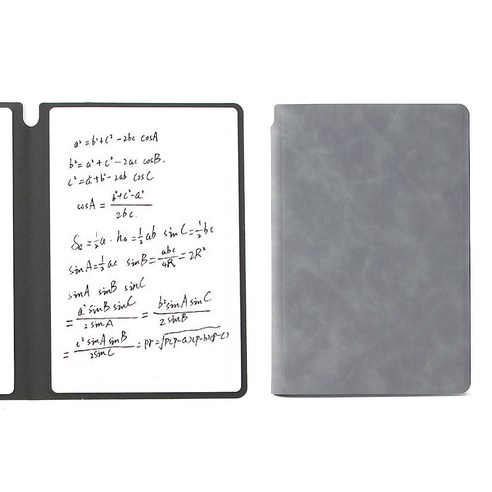 a² = b² + c² - 2bc cosA
b² = a² + c² - 2ac cosB.
c² = a² + b² - 2ab cosC
cosA = (b² + c² - a²) / 2bc.
S = ½a · ha = ½ab sinC = ½bc
sinA = ½ac sinB = abc / 4R = 2R²
sinA sinB sinC
= a² sinB sinC / 2 sinA = b² sinA sinC / 2 sinB
= c² sinA sinB / 2 sinC = pr = √p(p-a)(p-b)(p-c)